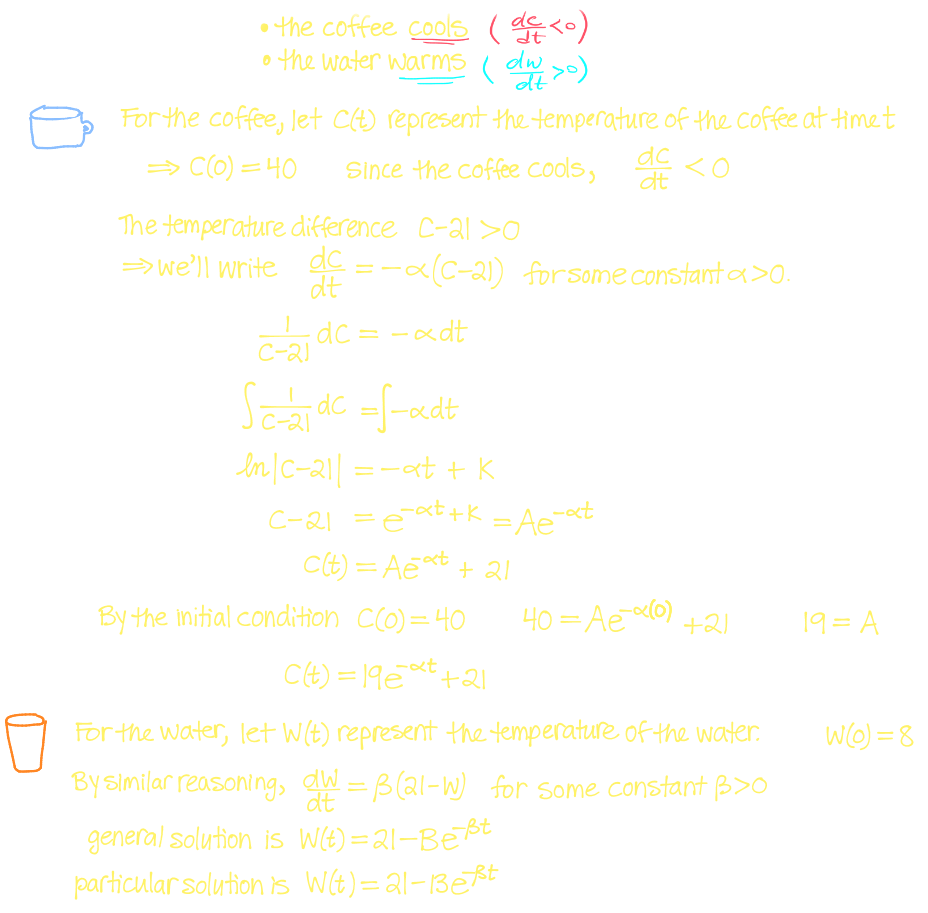 • the coffee cools ( dc/dt < 0 )
• the water warms ( dw/dt > 0 )
For the coffee, let C(t) represent the temperature of the coffee at time t
⇒ C(0) = 40 since the coffee cools, dC/dt < 0
The temperature difference C-21 > 0
⇒ we'll write dC/dt = -α(C-21) for some constant α > 0.
1/(C-21) dC = -α dt
∫ 1/(C-21) dC = ∫ -α dt
ln|C-21| = -αt + K
C-21 = e^(-αt+K) = Ae^(-αt)
C(t) = Ae^(-αt) + 21
By the initial condition C(0) = 40 40 = Ae^(-α(0)) + 21 19 = A
C(t) = 19e^(-αt) + 21
For the water, let W(t) represent the temperature of the water. W(0) = 8
By similar reasoning, dW/dt = β(21-W) for some constant β > 0
general solution is W(t) = 21 - Be^(-βt)
particular solution is W(t) = 21 - 13e^(-βt)